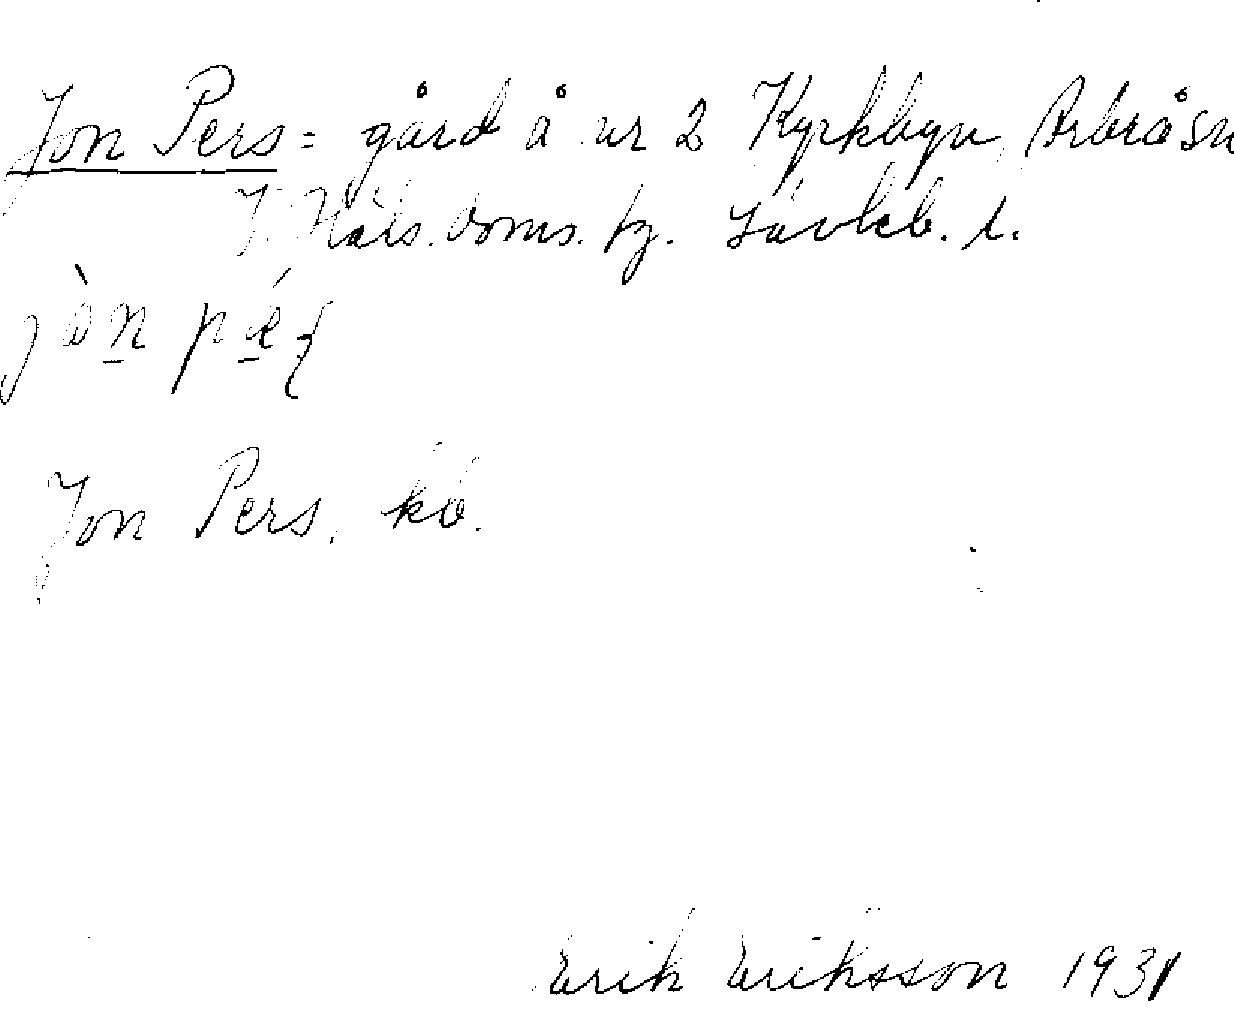 Jon Pers = gård å nr 2 Kyrkbyn, Arbråsn
V. Häls. doms. fg. Lävkb. 1.
jòn pé
Jon Pers. kö.
Erik Eriksson 1931